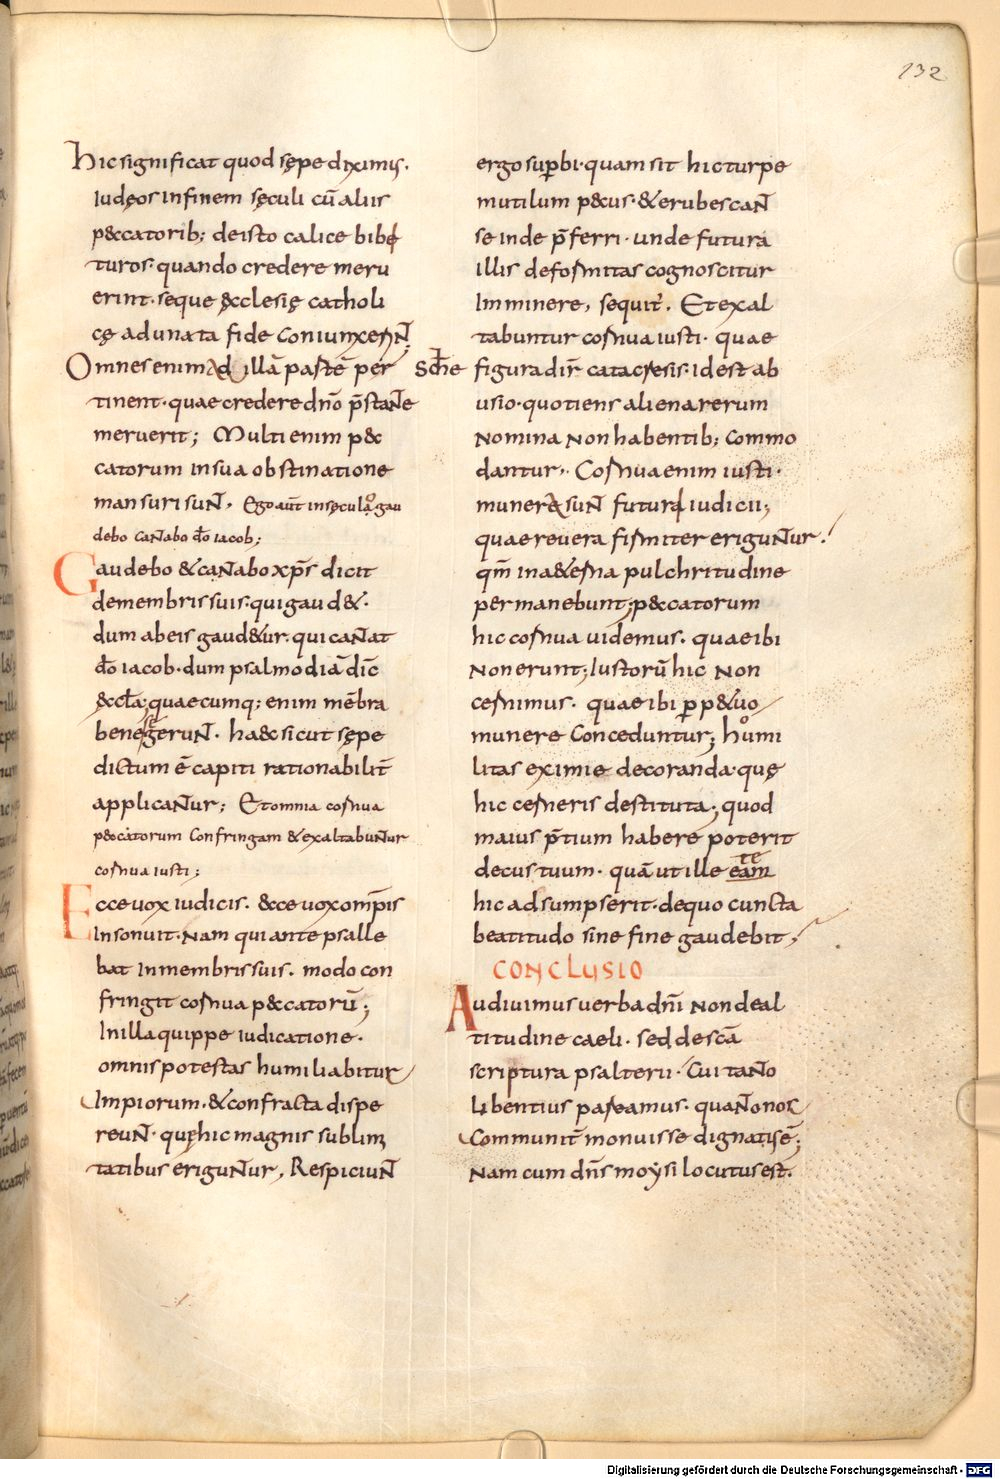 132
hic significat quod sępe diximus.
iudęos infinem sęculi cū aliis
p&catorib; deisto calice bibe
turos· quando credere meru
erint· seque ęcclesię catholi
cę adunata fide coniunxerN̄.
Omnes enim ad illā partē per
tinent· quae credere dn̄o p̄staNte
meruerit; Multi enim p&
catorum insua obstinatione
mansuri suN̄. Ego aut̄ insęcula gau
debo caNtabo d̄o iacob;
Gaudebo & caNtabo xp̄s dicit
demembris suis· qui gaud&·
dum abeis gaud&ur· qui caNtat
d̄o iacob· dum psalmodiā dic̄
& cet̄a; quaecumq; enim mēbra
bene gesserūN̄. haec sicut sępe
dictum ē capiti rationabilit̄
applicaNtur; Et omnia cornua
p&catorum confringam & exaltabuNtur
cornua iusti;
Ecce uox iudicis. ecce uox omp̄s
insonuit. Nam qui ante psalle
bat inmembris suis. modo con
fringit cornua p&catorū;
In illa quippe iudicatione.
omnis potestas humiliabitur
impiorum. & confracta dispe
reuN̄. quę hic magnis sublimi
tatibus eriguNtur. RespiciuN̄
ergo sup̄bi· quam sit hic turpe
mutilum p&cus· & erubescaN̄
se inde p̄ferri· unde futura
illis deformitas cognoscitur
imminere, sequit̄. Et exal
tabuntur cornua iusti· quae
sch̄e figura dir̄ catacresis· idest ab
usio· quotiens alienarerum
nomina non habentib; commo
dantur. Cornua enim iusti·
munera suN̄ futuri iudicii;
quae reuera firmiter eriguNtur.
qm̄ in a&erna pulchritudine
permanebunt; p&catorum
hic cornua uidemus. quae ibi
non erunt; Iustorū hic non
cernimus. quae ibi p̄p&uo
munere conceduntur; humi
litas eximie decoranda· quę
hic cerneris destituta; quod
maius p̄tium habere poterit
decus tuum. quā ut ille eam te
hic adsumpserit· dequo cuncta
beatitudo sine fine gaudebit;
CONCLUSIO
Audiuimus uerba dn̄i non deal
titudine caeli. sed descā
scriptura psalterii· Cui taNto
libentius pareamus. quaNto nos
communit̄ monuisse dignatus ē;
Nam cum dn̄s moẏsi locutus est.
Digitalisierung gefördert durch die Deutsche Forschungsgemeinschaft - DFG